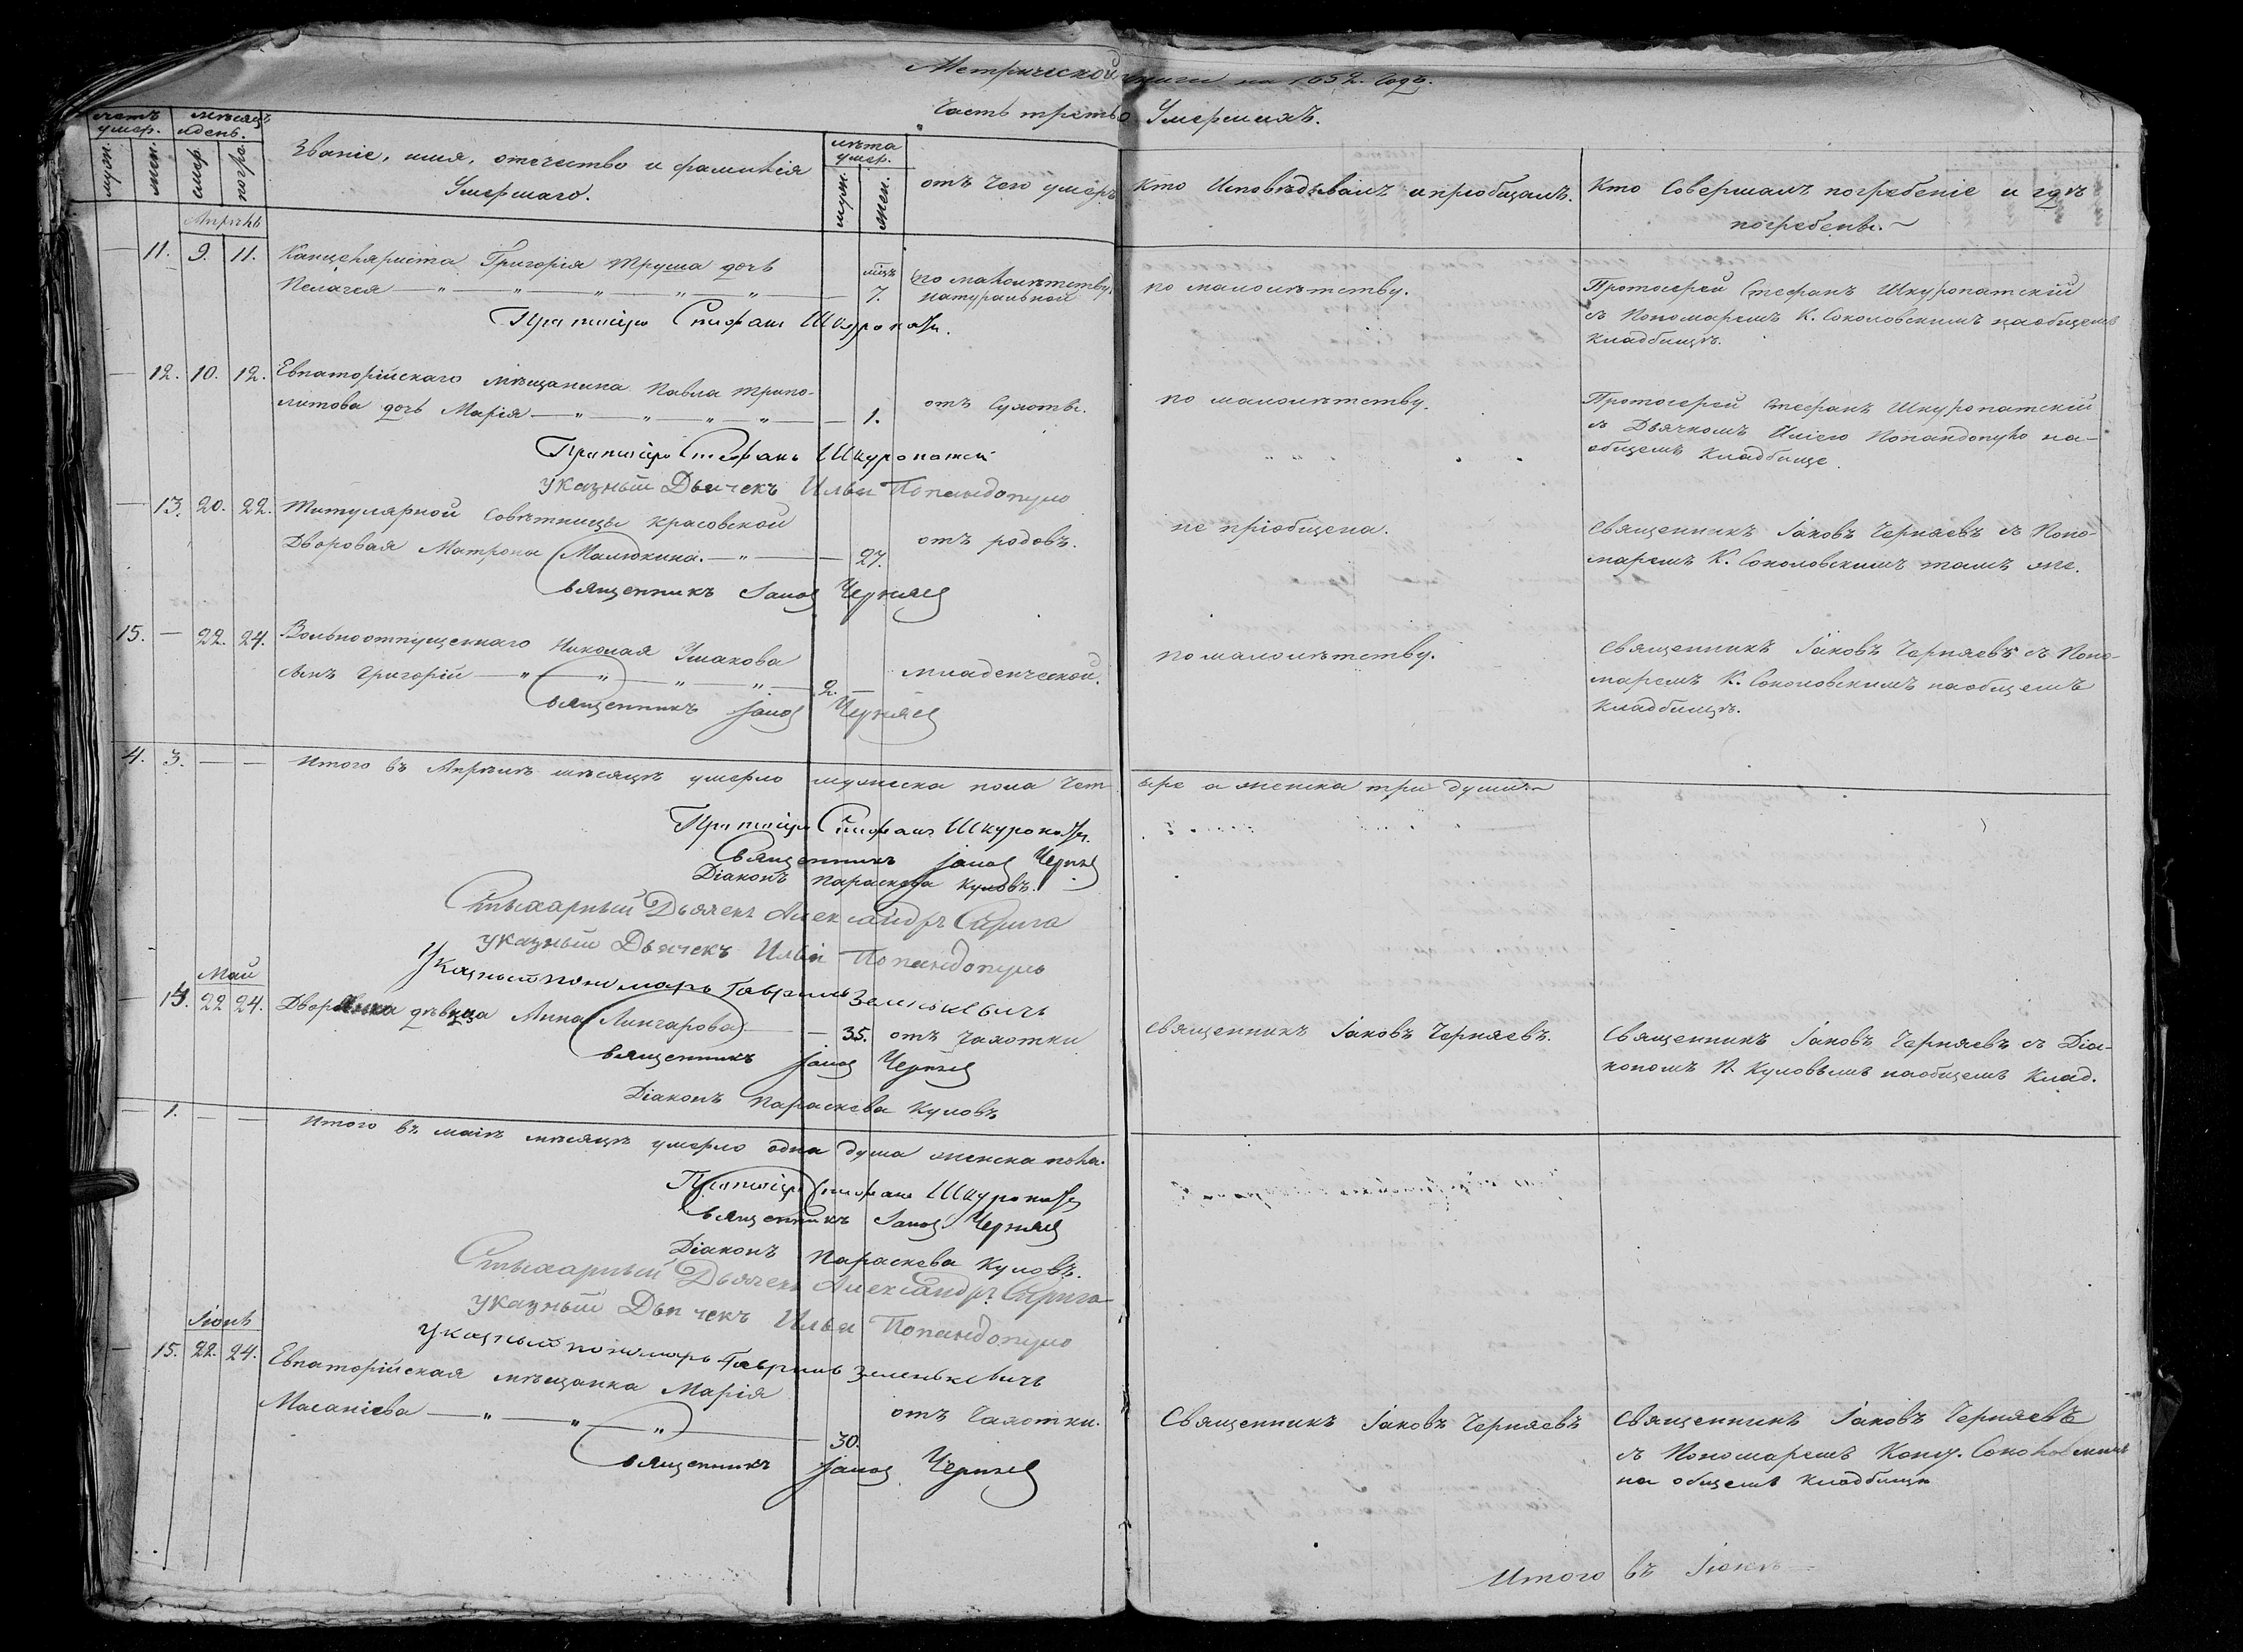 Метрической книги на 1852. Годъ.
Часть третья Умершихъ.
счетъ умер.
мѣсяцъ и день.
муж.
жен.
смер.
погре.
Званіе, имя, отечество и фамилія
Умершаго.
лѣта умер.
муж.
жен.
отъ чего умеръ
Кто Исповѣдывалъ и пріобщалъ.
Кто Совершалъ погребеніе и гдѣ
погребены.
Апрѣль
— 11. 9. 11. Канцеляриста Григорія Труша дочь
Пелагея — " — " — " — " — " —
мцъ 7.
по малолѣтству.
натуральной
по малолѣтству.
Протоіерей Стефанъ Шкуропатскій
съ Пономаремъ К. Соколовскимъ на общемъ
Кладбищѣ.
Протоіерей Стефанъ
— 12. 10. 12. Евпаторійскаго мѣщанина Павла Трипо-
литова дочь Марія — " — " — " — " — 1.
отъ Сухоты.
по малолѣтству.
Протоіерей Стефанъ Шкуропатскій
съ Дьячкомъ Иліею Попандопуло на-
общемъ Кладбище.
Протоіерей Стефанъ
указный Дьячекъ Илья Попандопуло
— 13. 20. 22. Титулярной Совѣтницы Красовской
Дворовая Матрона Малюкина. — " — 27.
отъ родовъ.
не пріобщена.
Священникъ Іаковъ Черняевъ съ Поно-
маремъ К. Соколовскимъ тамъ же.
Священникъ Іаковъ Черняев
15. — 22. 24. Вольноотпущеннаго Николая Ушакова
сынъ Григорій — " — " — " — " — 2. —
младенческой.
по малолѣтству.
Священникъ Іаковъ Черняевъ съ Поно-
маремъ К. Соколовскимъ на общемъ
Кладбищѣ.
Священникъ Іаков Черняев
4. 3. — — Итого въ Апрѣлѣ мѣсяцѣ умерло мужеска пола чет ыре а женска три души
Протоіерей Стефанъ
Священникъ Іаков Черняев
Діаконъ Параскева Куловъ.
Стихарный Дьячекъ Александръ
указный Дьячекъ Илья Попандопуло
Указный пономарь Гавріилъ Зеленькевичъ
Май
— 14. 22 24. Дворянка дѣвица Анна Лингарова — 35.
отъ чахотки
Священникъ Іаковъ Черняевъ.
Священникъ Іаковъ Черняевъ съ Діа-
кономъ П. Куловымъ на общемъ Клад.
Священникъ Іаков Черняев
Діаконъ Параскева Куловъ
— 1. — — Итого въ маѣ мѣсяцѣ умерло одна душа женска пола.
Протоіерей Стефанъ
Священникъ Іаков Черняев
Діаконъ Параскева Куловъ.
Стихарный Дьячекъ Александръ
указный Дьячекъ Илья Попандопуло
Указный пономарь Гавріилъ Зеленькевичъ
Іюнь
— 15. 22. 24. Евпаторійская мѣщанка Марія
Масаніева — " — " — " — 30.
отъ Чахотки.
Священникъ Іаковъ Черняевъ
Священникъ Іаковъ Черняевъ
съ Пономаремъ
на общемъ Кладбищѣ
Священникъ Іаков Черняев
Итого въ Іюнѣ